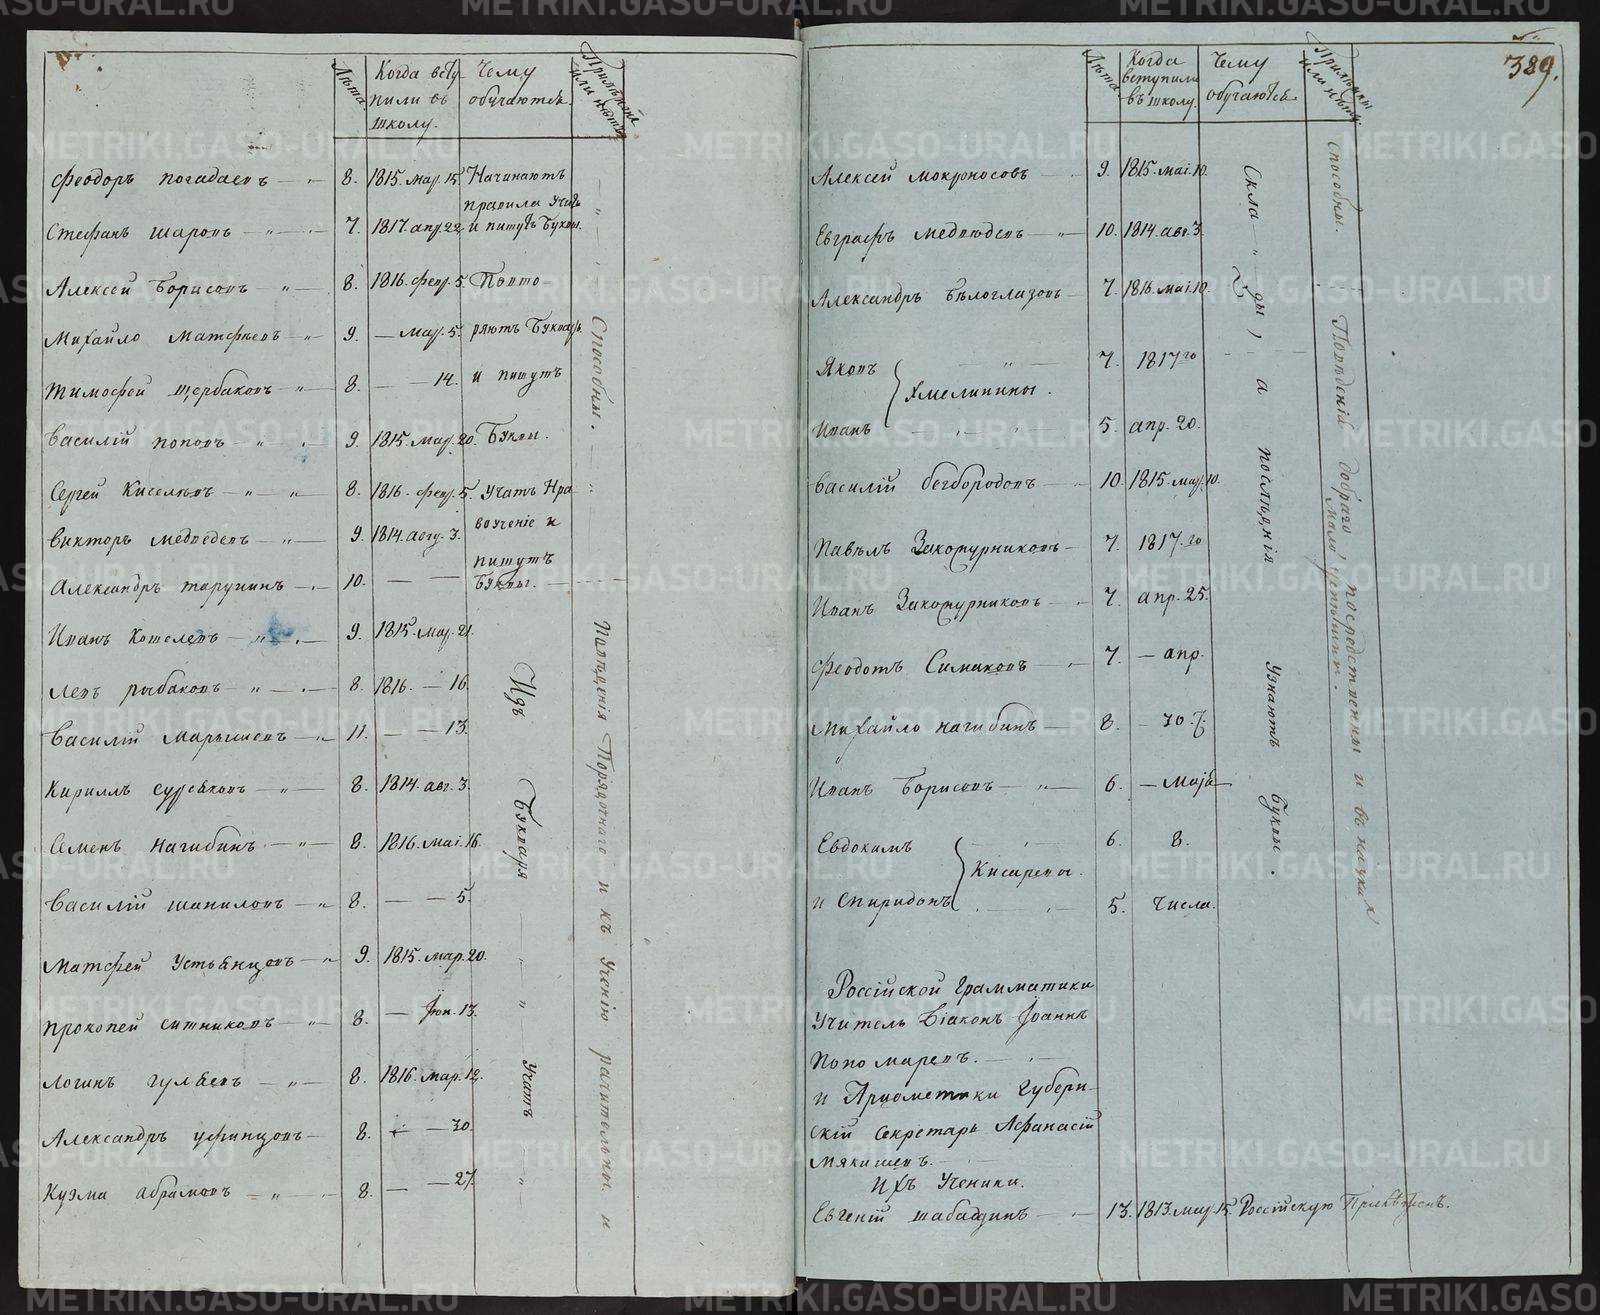 Лѣта. Когда всту Чему
пили въ обучаются.
школу.
Феодоръ Погадаевъ 8. 1815. мар. 15. Начинаютъ
правила учить
Стефанъ Шаровъ 7. 1817. апр. 22. и пишутъ Буквы.
Алексѣй Борисовъ 8. 1816. февр. 5. Повто
Михайло Матфѣевъ 9. — мар. 5. ряютъ Букварь
Тимофей Щербаковъ 8. — — 14. и пишутъ
Василій Поповъ 9. 1815. мар. 20. Буквы.
Сергей Киселевъ 8. 1816. февр. 5. учатъ Нра
воученіе и
Викторъ Медвѣдевъ 9. 1814. авгу. 3. пишутъ
Александръ Тарунинъ 10. — — Буквы.
Иванъ Кошелевъ 9. 1815. мар. 21.
Левъ Рыбаковъ 8. 1816. — 16.
Василій Марышевъ 11. — — 13.
Кириллъ Суряковъ 8. 1814. авг. 3.
Семенъ Нагибинъ 8. 1816. маі. 16.
Василій Шавиловъ 8. — — 5.
Матфей Устьянцовъ 9. 1815. мар. 20.
Прокопей Ситниковъ 8. — Іюн. 13.
Логинъ Гуляевъ 8. 1816. мар. 12.
Александръ Уфинцовъ 8. — — 30.
Кузма Абрамовъ 8. — — 27.
Изъ Букваря учатъ
Способны.
Поведенія Порядочнаго и къ ученію рачительны и
389.
Лѣта. Когда Чему
вступили обучаются.
въ школу.
Алексей Мокроносовъ 9. 1815. маі. 10.
Евграфъ Медвѣдевъ 10. 1814. авг. 3.
Александръ Бѣлоглазовъ 7. 1816. маі. 10.
Яковъ 7. 1817 го
Хмелинины.
Иванъ 5. апр. 20.
Василій Безбородовъ 10. 1815. мар. 10.
Павелъ Закожурниковъ 7. 1817. го
Иванъ Закожурниковъ 7. апр. 25.
Феодотъ Симаковъ 7. — апр.
Михайло Нагибинъ 8. — 30.
Иванъ Борисовъ 6. — Маја
Евдокимъ 6. 8.
Кисаревы.
и Спиридонъ 5. Числа.
Склады, а послѣднія узнаютъ Буквы.
способны.
Поведенія добраго, посредственны и въ наукахъ
мало успѣшны.
Россійской Грамматики
Учитель Діаконъ Іоаннъ
Пономаревъ.
и Ариѳметики Губерн
скій Секретарь Афанасій
Мякишевъ.
Ихъ Ученики.
Евгеній Шабадинъ 13. 1813. мар. 15. Россійскую
METRIKI.GASO-URAL.RU